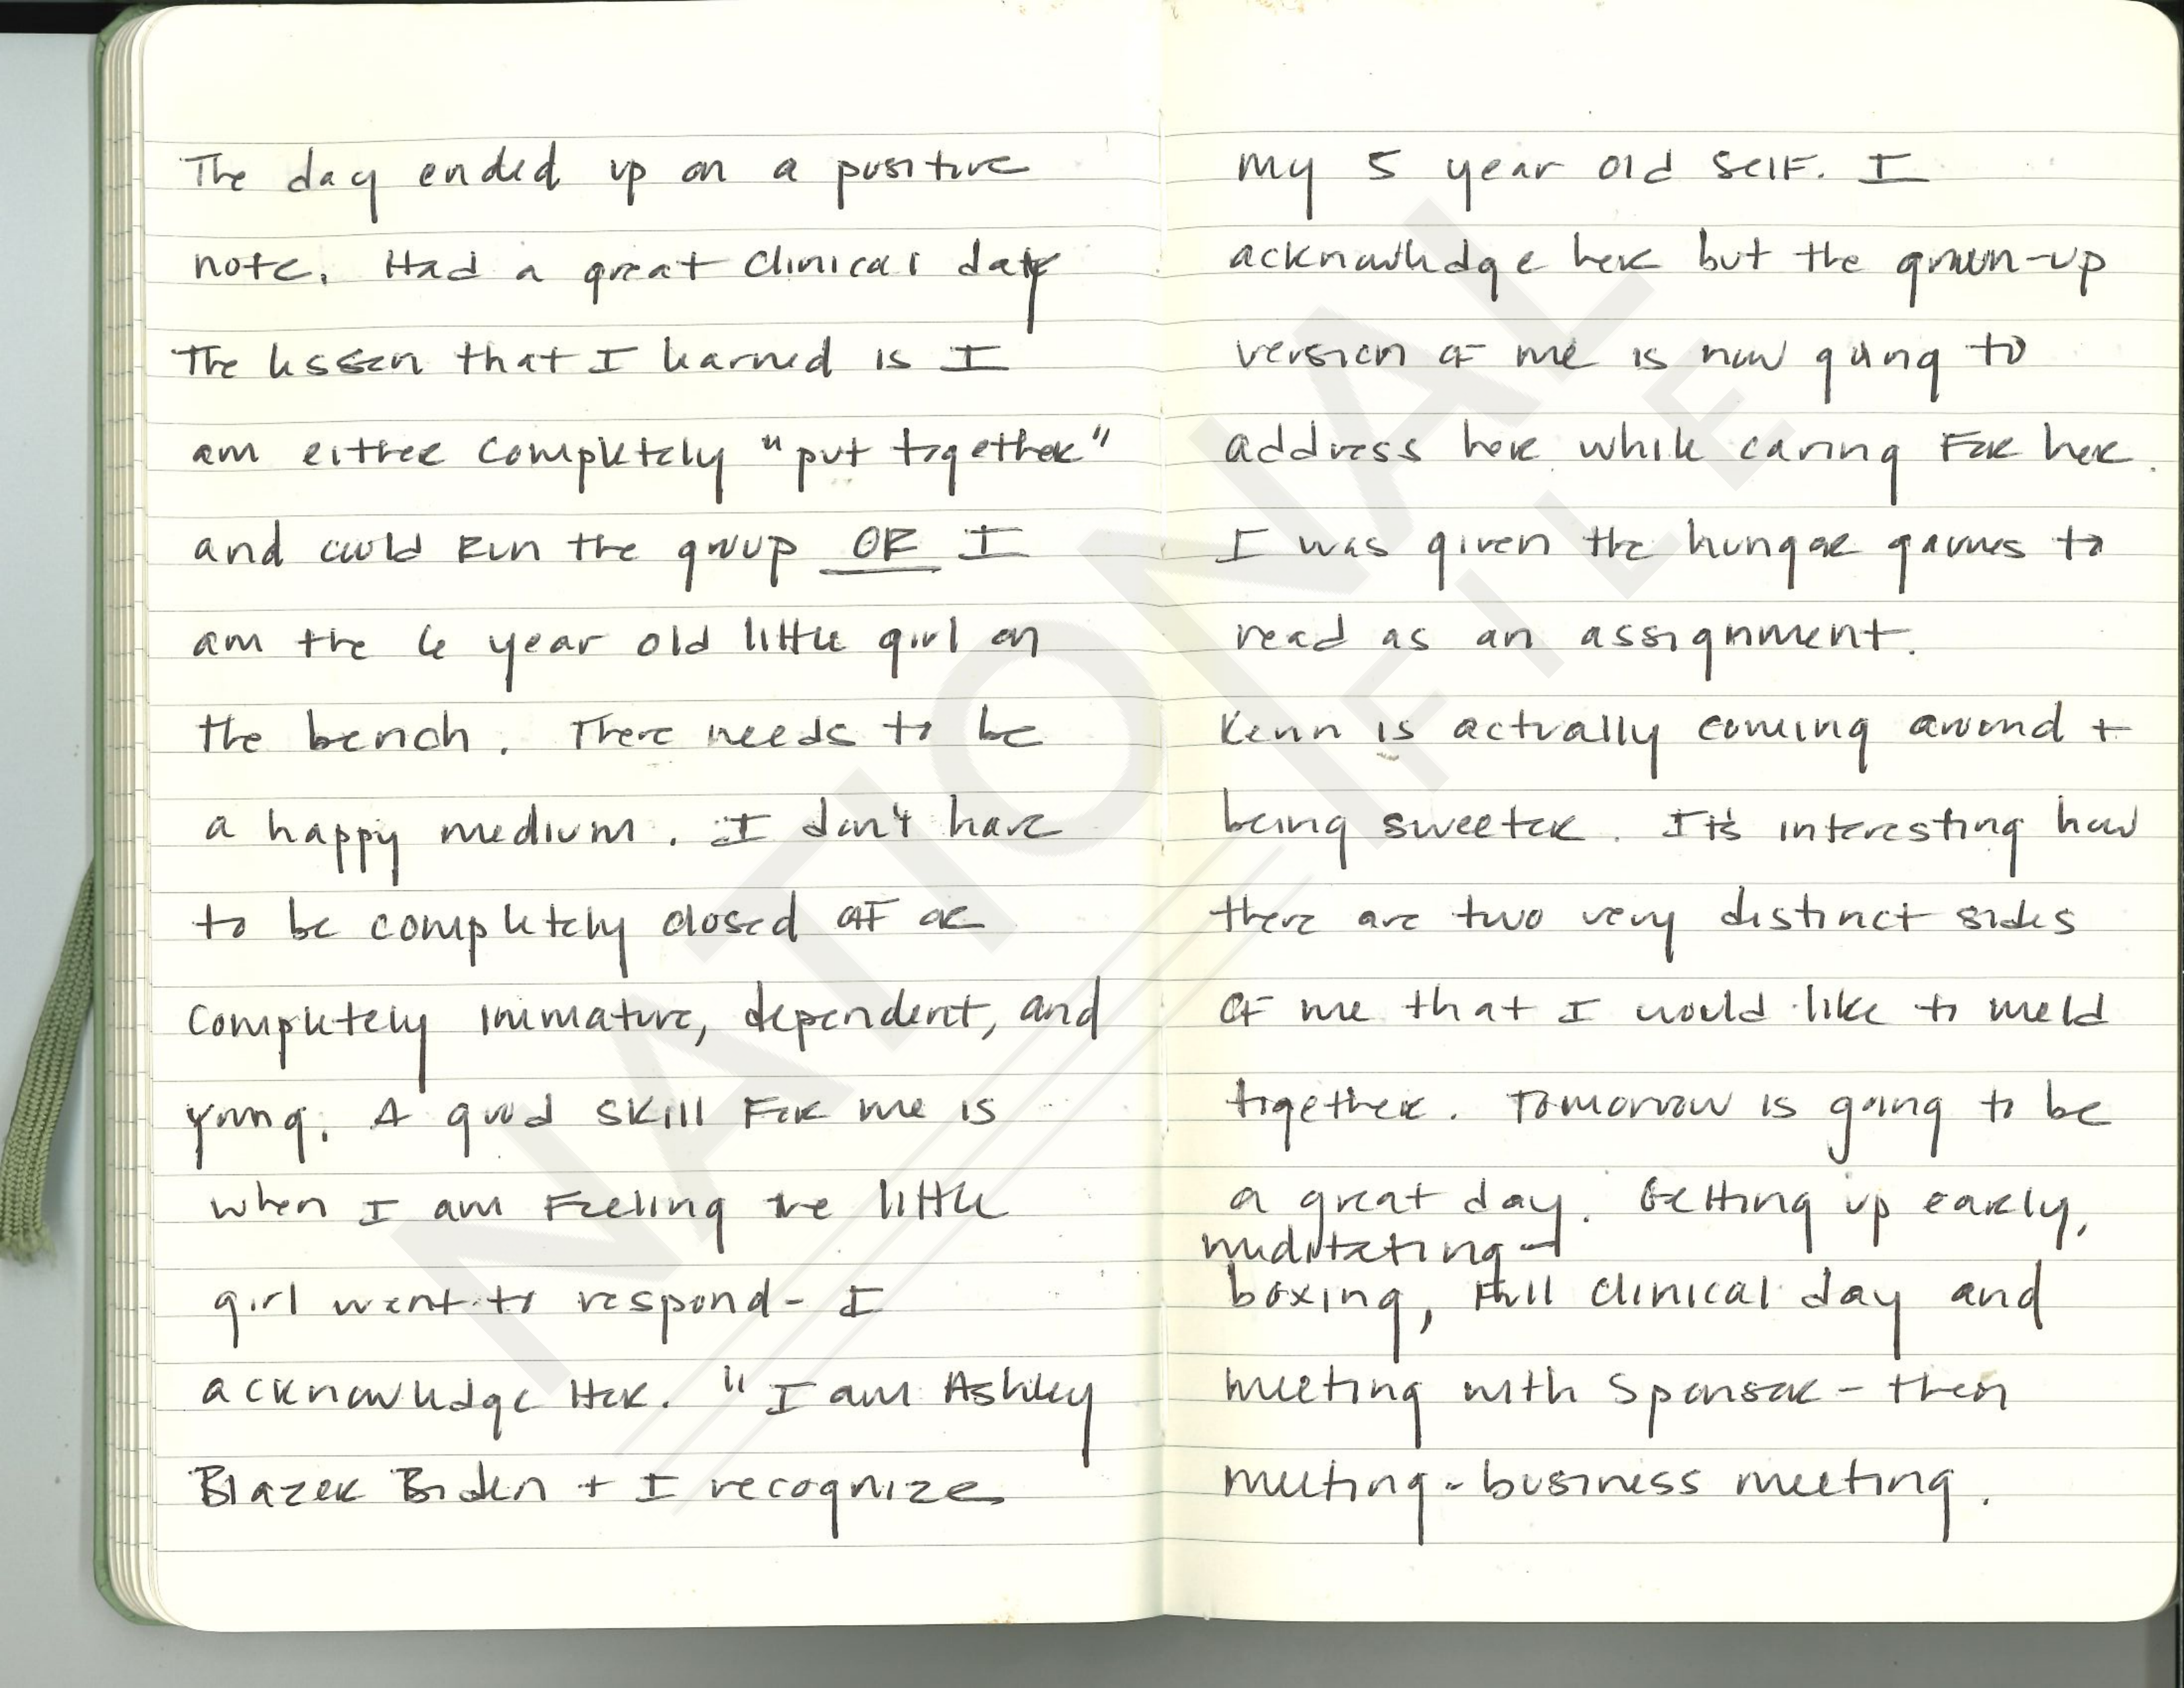 The day ended up on a positive
note. Had a great clinical day
The lesson that I learned is I
am either completely "put together"
and could run the group OR I
am the 6 year old little girl on
the bench. There needs to be
a happy medium. I don't have
to be completely closed off or
completely immature, dependent, and
young. A good skill for me is
when I am feeling the little
girl want to respond - I
acknowledge her. "I am Ashley
Blazer Biden + I recognize
my 5 year old self. I
acknowledge her but the grown-up
version of me is now going to
address her while caring for her.
I was given the hunger games to
read as an assignment.
is actually coming around +
being sweeter. It's interesting how
there are two very distinct sides
of me that I would like to meld
together. Tomorrow is going to be
a great day. Getting up early,
meditating
boxing, full clinical day and
meeting with sponsor - then
meeting - business meeting.
NATIONAL
FILE